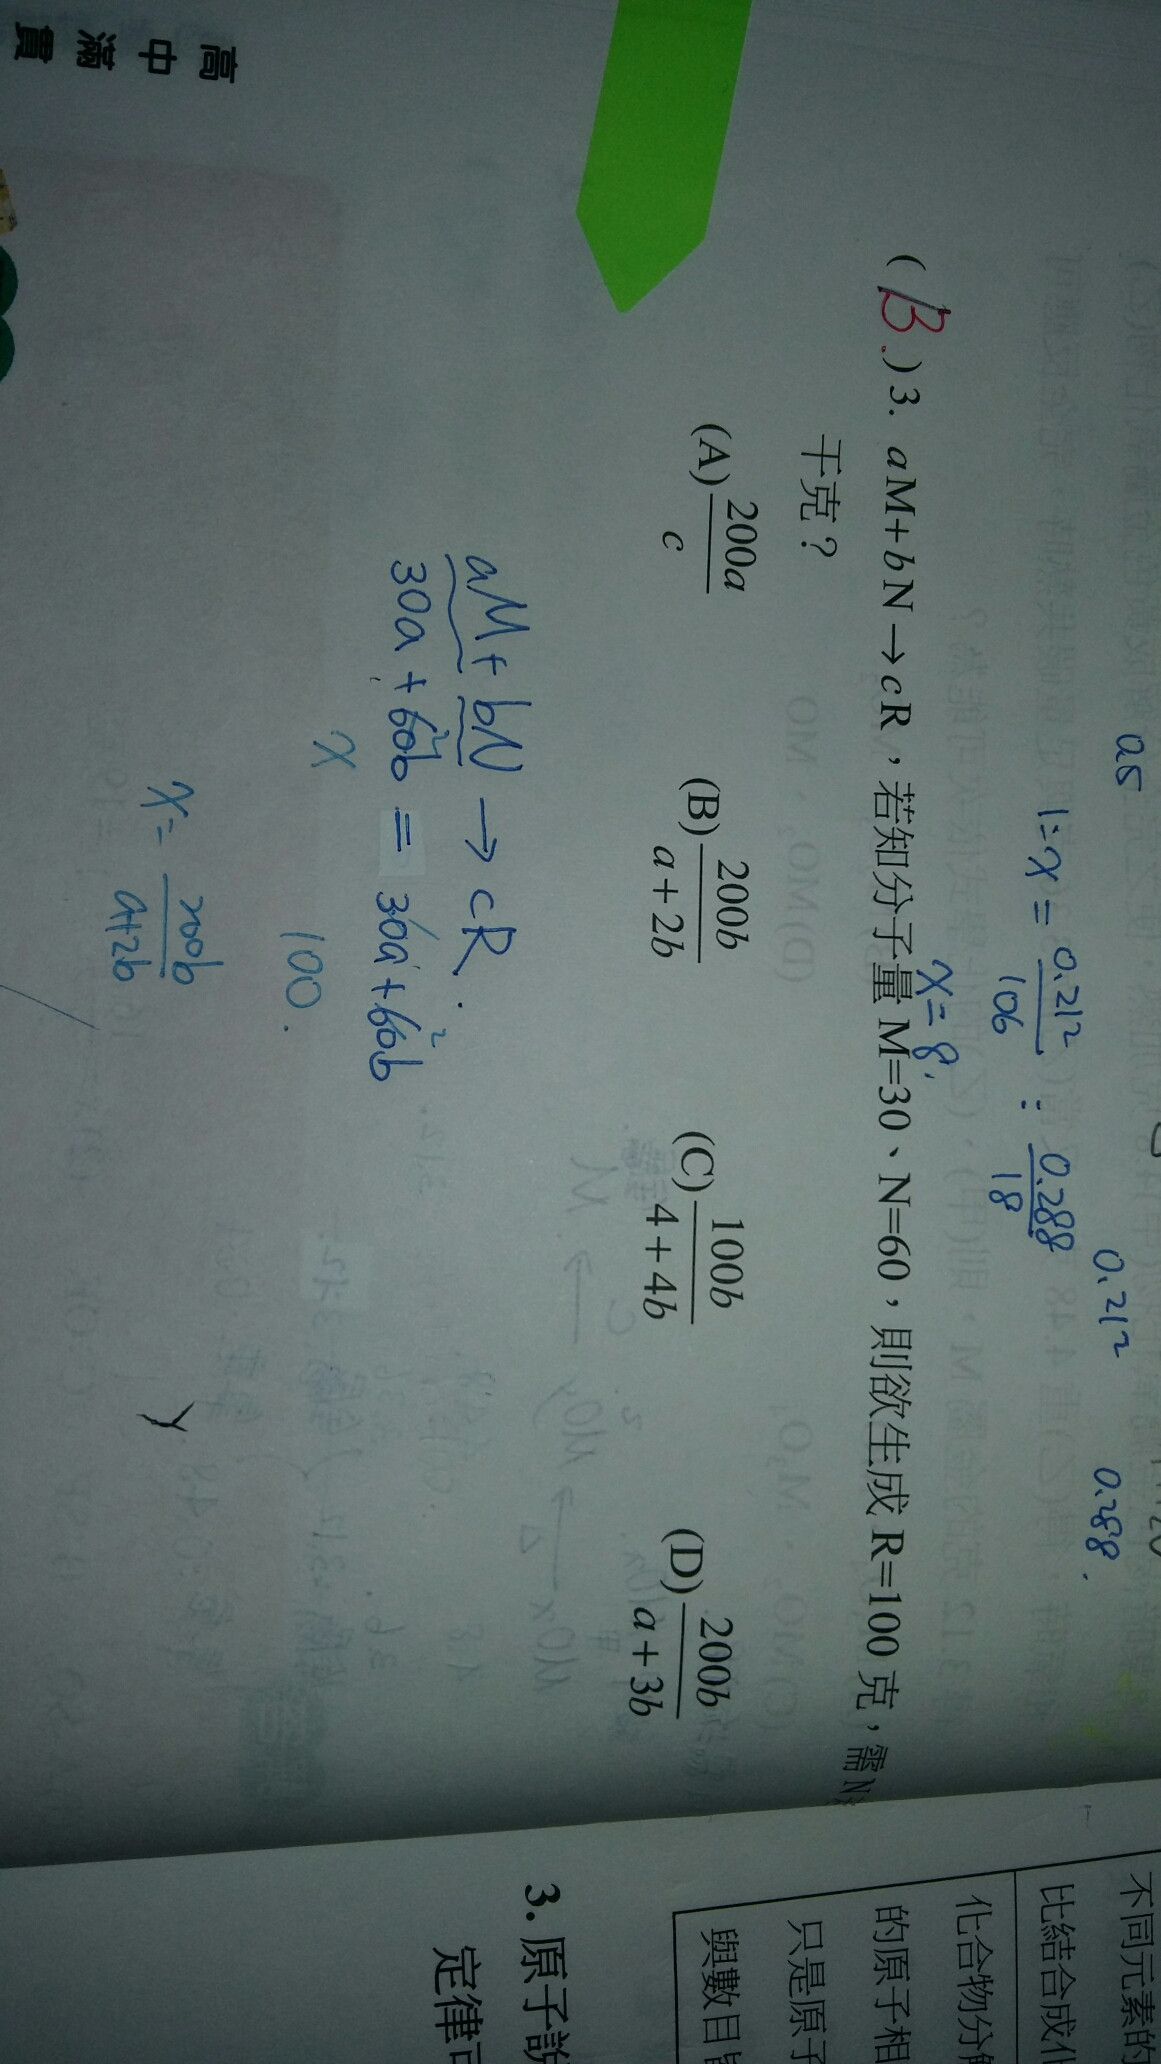 a5
0.212
0.288.
1=x=0.212/106 : 0.288/18
x=8.
(B.)3. aM+bN→cR，若知分子量 M=30、N=60，則欲生成 R=100 克，需N
干克？
(A) 200a/c (B) 200b/a+2b (C) 100b/4+4b (D) 200b/a+3b
aM+bN→cR.
30a+60b=30a+60b
2
2
x
100.
x=200b/a+2b
高中滿貫
不同元素的
比結合成化
化合物分
的原子相
只是原子
與數目
3. 原子說
定律